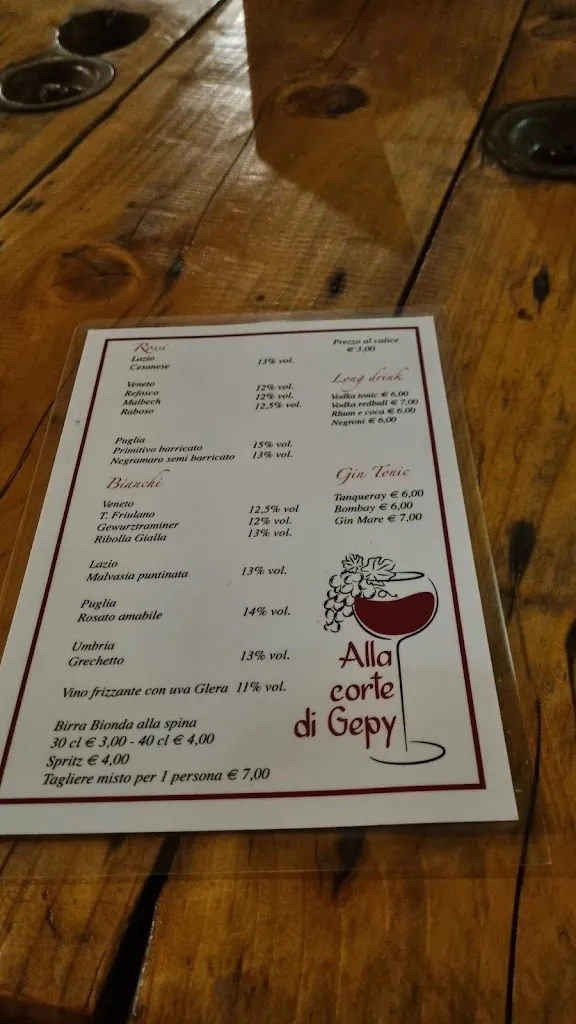 Rossi
Lazio
Cesanese 13% vol.
Veneto
Refosco 12% vol.
Malbech 12% vol.
Raboso 12,5% vol.
Puglia
Primitivo barricato 15% vol.
Negramaro semi barricato 13% vol.
Bianchi
Veneto
T. Friulano 12,5% vol
Gewurztraminer 12% vol.
Ribolla Gialla 13% vol.
Lazio
Malvasia puntinata 13% vol.
Puglia
Rosato amabile 14% vol.
Umbria
Grechetto 13% vol.
Vino frizzante con uva Glera 11% vol.
Birra Bionda alla spina
30 cl € 3,00 - 40 cl € 4,00
Spritz € 4,00
Tagliere misto per 1 persona € 7,00
Prezzo al calice
€ 3,00
Long drink
Vodka tonic € 6,00
Vodka redbull € 7,00
Rhum e coca € 6,00
Negroni € 6,00
Gin Tonic
Tanqueray € 6,00
Bombay € 6,00
Gin Mare € 7,00
Alla
corte
di Gepy